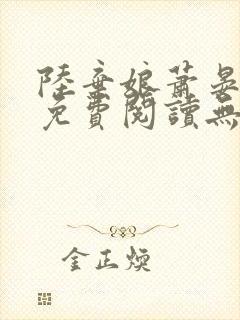 陸棄娘蕭晏
免費閱讀無
金正煥